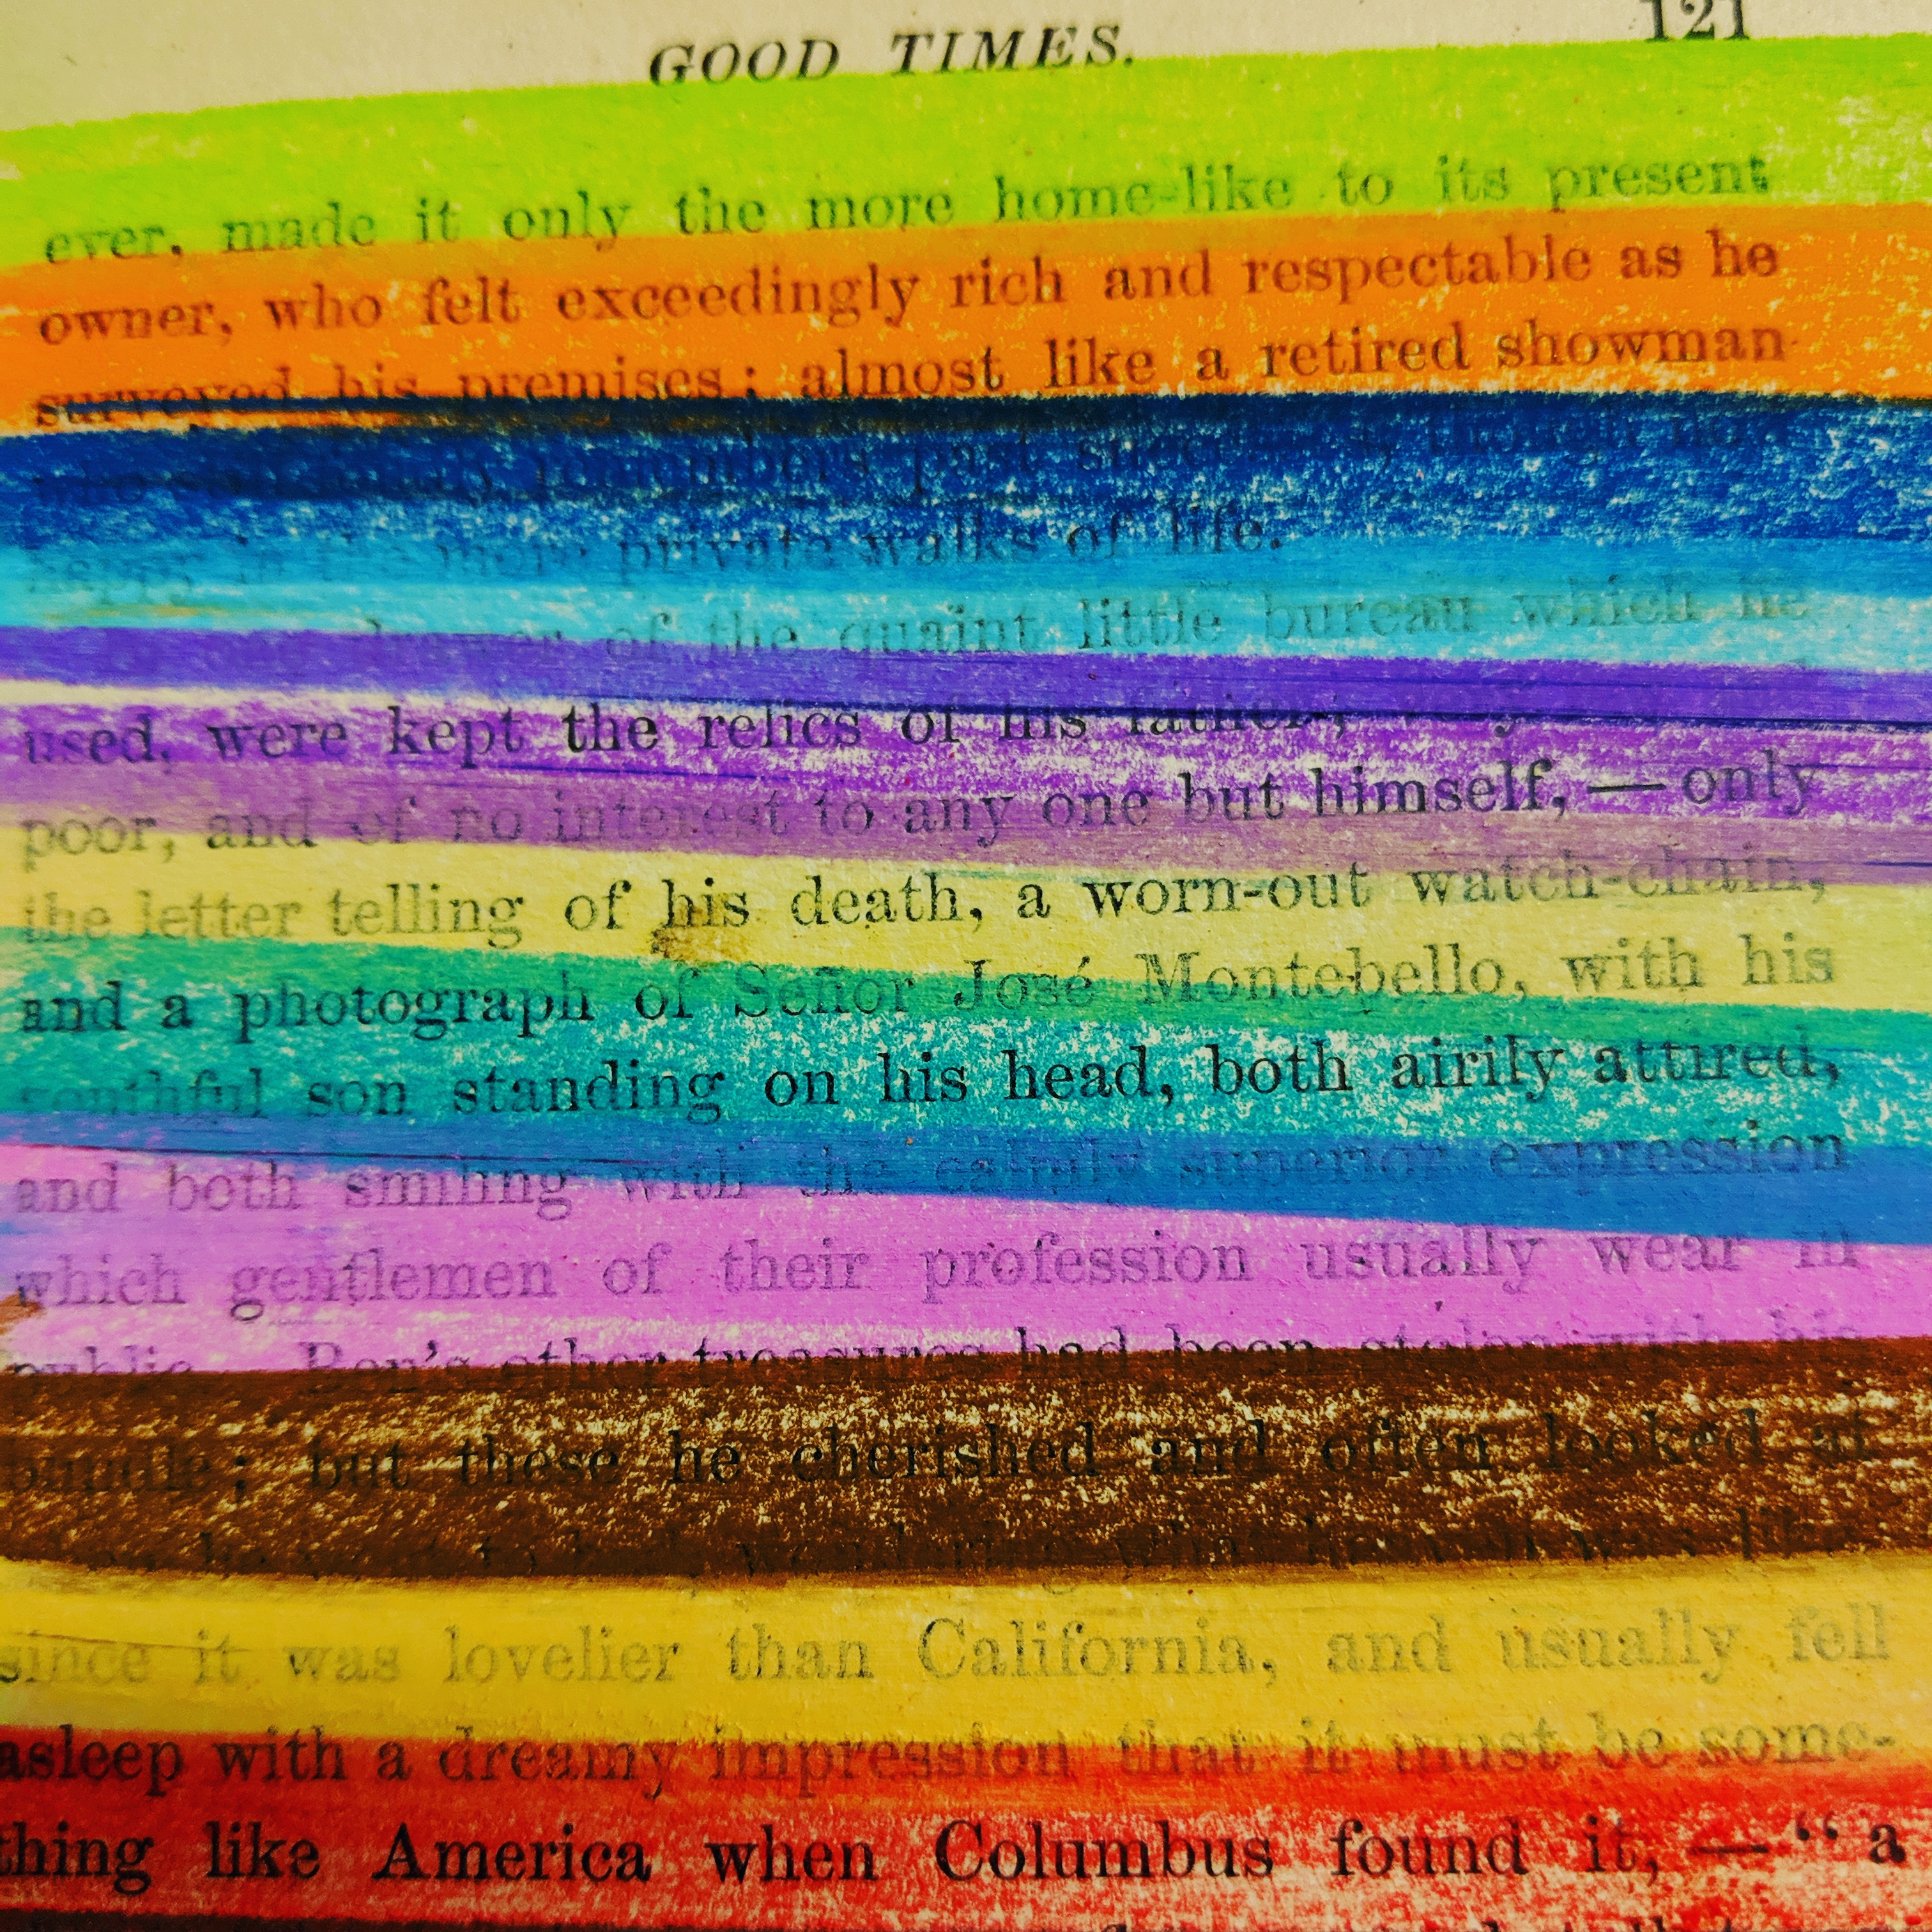 GOOD TIMES. 121
ever, made it only the more home-like to its present
owner, who felt exceedingly rich and respectable as he
surveyed his premises; almost like a retired showman
remembers past though no
happy in the more private walks of life.
drawer of the quaint little bureau which he
used, were kept the relics of his father;
poor, and of no interest to any one but himself, — only
the letter telling of his death, a worn-out watch-chain,
and a photograph of Señor José Montebello, with his
youthful son standing on his head, both airily attired,
and both smiling with the calmly superior expression
which gentlemen of their profession usually wear in
public. Ben's other treasures had been stolen with his
bundle; but these he cherished and often looked at
since it was lovelier than California, and usually fell
asleep with a dreamy impression that it must be some-
thing like America when Columbus found it, — “a